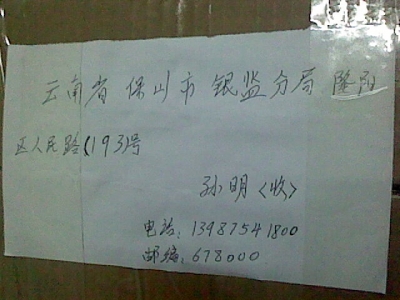 云南省 保山市 银监分局 隆阳
区人民路(193)号
孙明<收>
电话:13987541800
邮编:678000